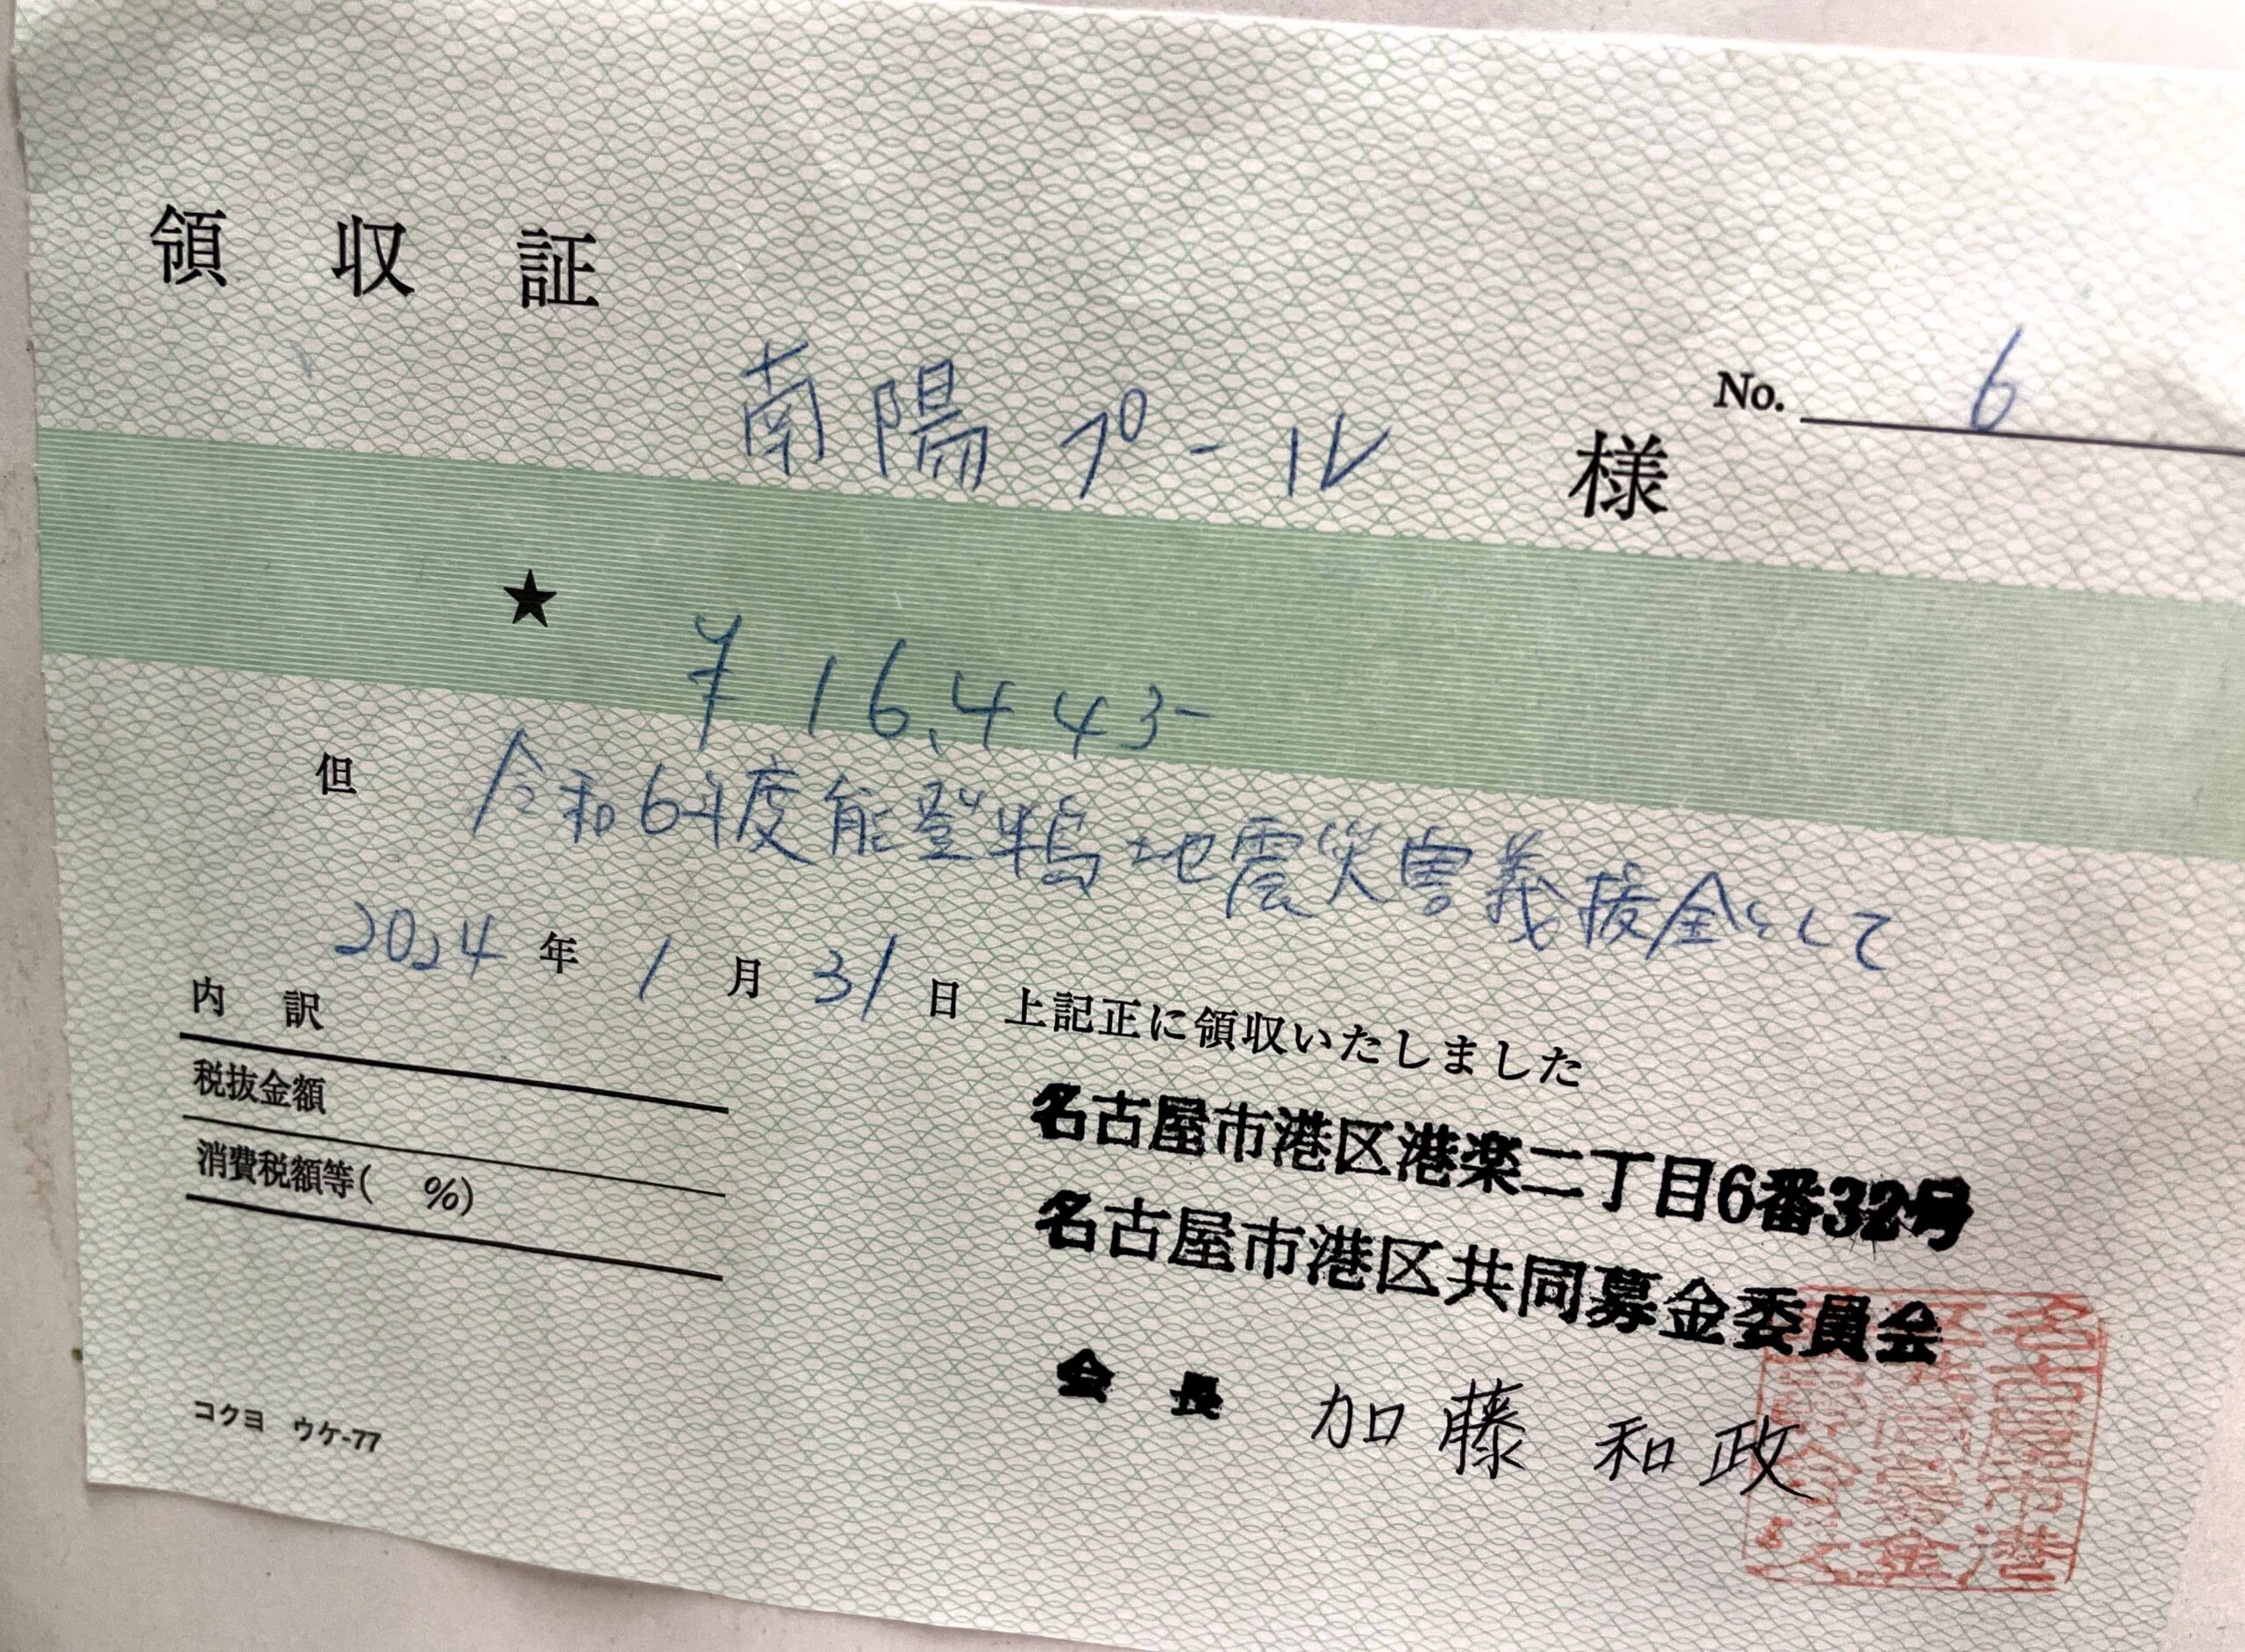 領収証
No. 6
南陽プール 様
★
¥16,443-
但 令和6年度能登半島地震災害義援金として
2024年1月31日 上記正に領収いたしました
内訳
税抜金額
消費税額等( %)
名古屋市港区港楽二丁目6番32号
名古屋市港区共同募金委員会
会長 加藤和政
コクヨ ウケ-77